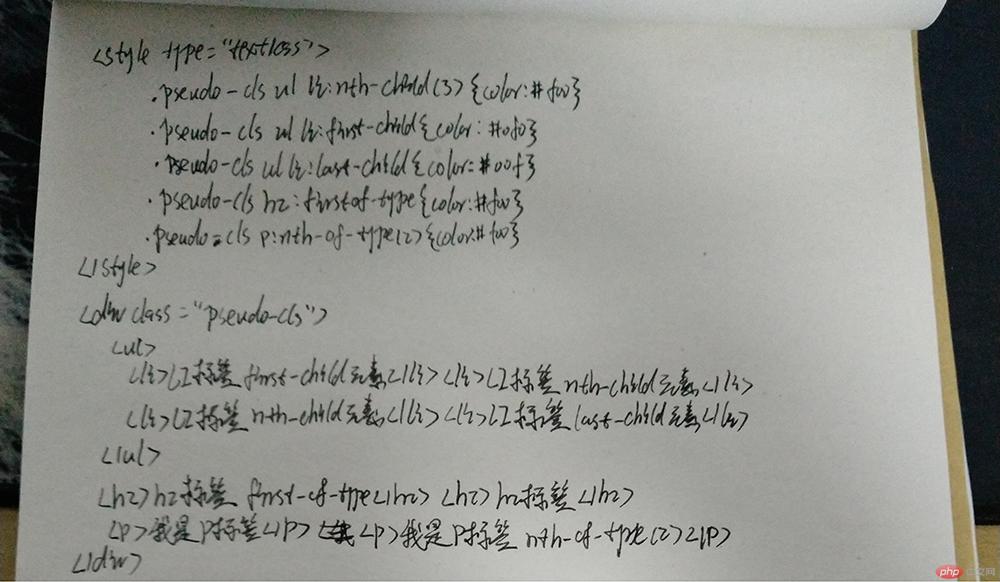 <style type="text/css">
.pseudo-cls ul li:nth-child(3){color:#f00}
.pseudo-cls ul li:first-child{color:#0f0}
.pseudo-cls ul li:last-child{color:#00f}
.pseudo-cls h2:firstof-type{color:#f00}
.pseudo-cls p:nth-of-type(2){color:#f00}
</style>
<div class="pseudo-cls">
<ul>
<li>LI标签first-child元素</li><li>LI标签nth-child元素</li>
<li>LI标签nth-child元素</li><li>LI标签last-child元素</li>
</ul>
<h2>h2标签 first-of-type</h2> <h2>h2标签</h2>
<p>我是P标签</p> <p>我是P标签 nth-of-type(2)</p>
</div>
php 中文网